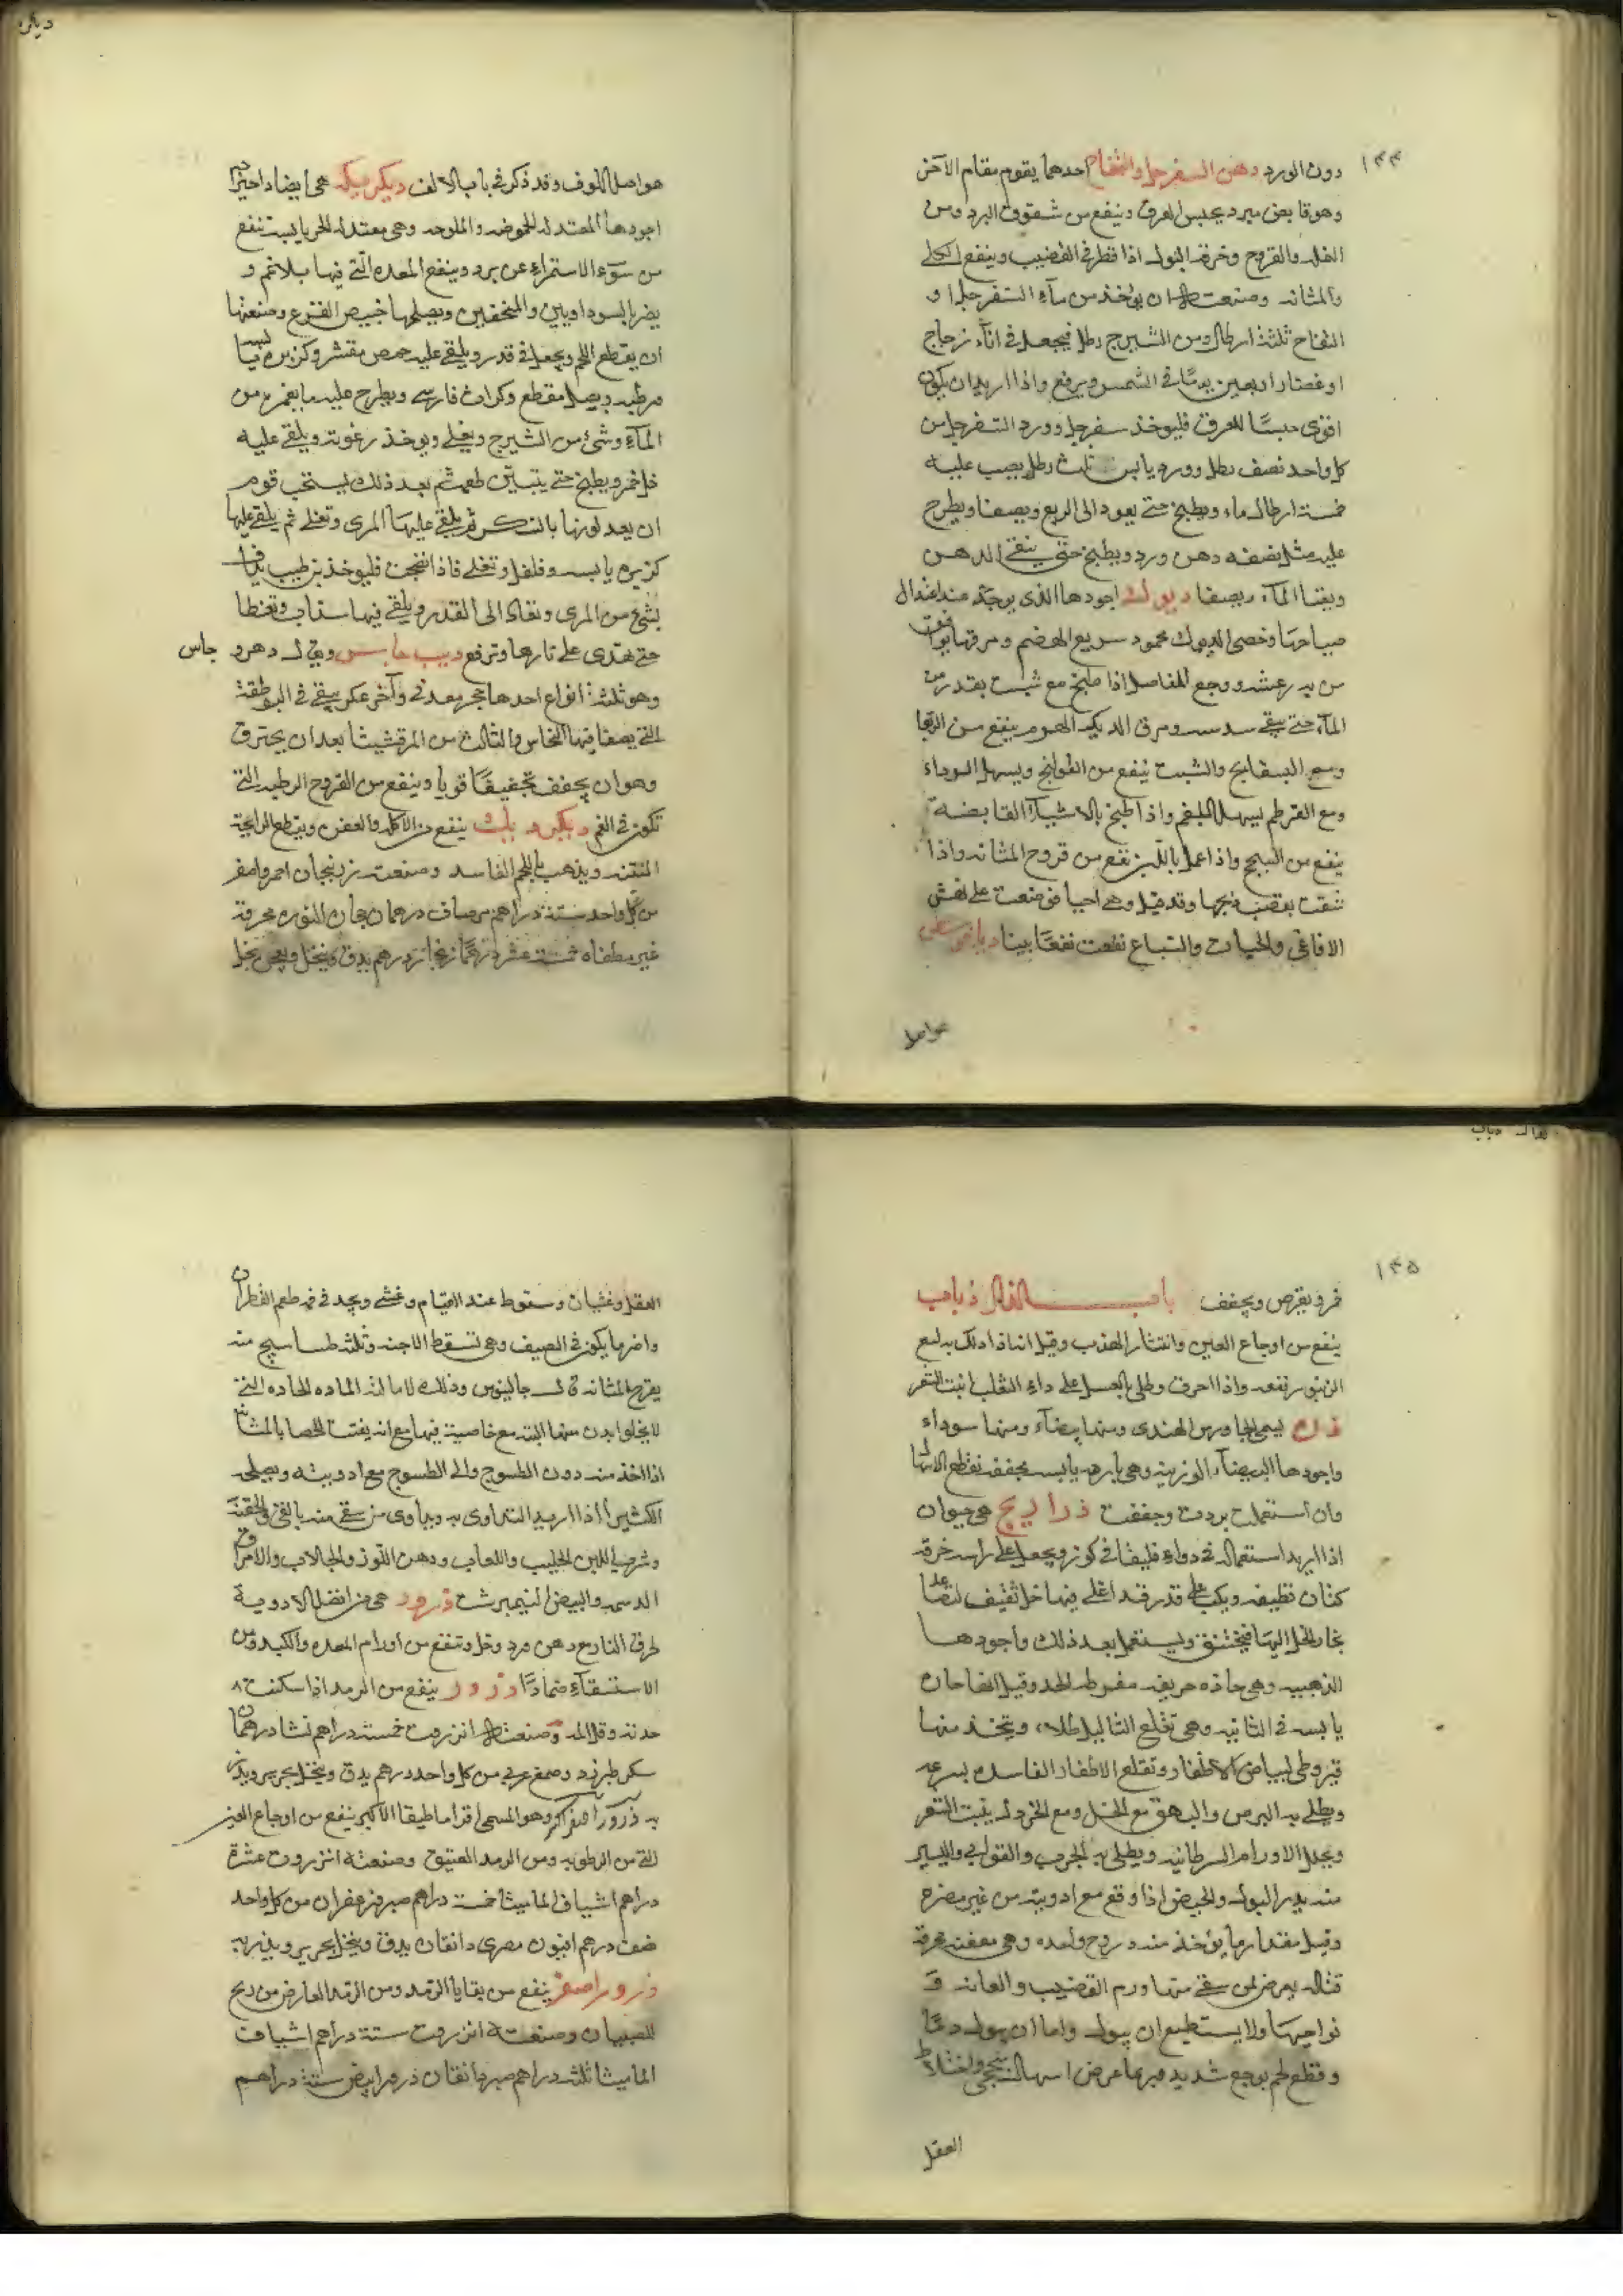 ١٣٤
دون الورد دهن السفرجل والتفاح احدهما يقوم مقام الآخر
وهو قابض مبرد يحبس العرق وينفع من شقوق البرد ومن
النمله والقروح وحرقة البول اذا قطر في القضيب وينفع الكلى
والمثانه وصنعته ان يؤخذ من مآء السفرجل او
التفاح ثلثة ارطال ومن الشيرج رطل فيجعل في انآء زجاج
او غضار اربعين يوما في الشمس ويرفع واذا اريد ان يكون
اقوى حبسًا للعرق فليوخذ سفرجل وورد السفرجل من
كل واحد نصف رطل وورد يابس ثلث رطل يصب عليه
خمسة ارطال ماء ويطبخ حتى يعود الى الربع ويصفا ويطرح
عليه مثل نصفه دهن ورد ويطبخ حتى ينقى الدهن
ويفنا المآء ويصفا ديوك اجودها الذى يوجد عند اعتدال
صياحها وخصى الديوك محمود سريع الهضم ومرقها يوافق
من به رعشه ووجع المفاصل اذا طبخ مع شبت بقدر من
المآء حتى يبقى سدسه ومرق الديك الهرم ينفع من الربو
ومع البسفايج والشبت ينفع من القولنج ويسهل السوداء
ومع القرطم يسهل البلغم واذا طبخ بالاشيآء القابضة
ينفع من السحج واذا عمل باللبن نفع من قروح المثانه واذا
شقت بعضبة بحرها وقد قيل وهى احيا فوضعت على نهش
الافاعى والحيات والسباع نفعت نفعًا بينا
هواصل
هو اصل اللوف وقد ذكر في باب الالف ديكبريكه هى ايضا
اجودها المعتدلة الحموضه والملوحه وهى معتدله الحر يابسة تنفع
من سوء الاستمراء عن برد وينفع المعده التى فيها بلاغم و
يضر بالسوداويين والمنحفين ويصلحها خبيص القرع وصنعتها
ان يقطع اللحم ويجعل في قدر ويلقى عليه حمص مقشر وكزبره يابسه
ورطبه وبصل مقطع وكراث فارسى ويطرح عليه ما يغمره من
المآء وشئ من الشيرج ويغلى ويوخذ رغوته ويلقى عليه
خل خمر ويطبخ حتى يتبين طعمه ثم بعد ذلك يستحب قوم
ان يعد لونها بالسكر ثم يلقى عليها المرى وتغلى ثم يلقى عليها
كزبره يابسه وفلفل وتغلى فاذا نضجت فليوخذ بزر طيب يداف
بشئ من المرى وتعاد الى القدر ويلقى فيها سذاب وتغطا
حتى تهدى على نارها وترفع ديب جاس ويقال دهرو جاس
وهو ثلثة انواع احدها حجر معدنى وآخر عكر يبقى في البوطقة
التى يصفا فيها النحاس والثالث من المرقشيثا بعد ان يحترق
وهو ان يجفف تجفيفًا قويا وينفع من القروح الرطبه التى
تكون في الفم ديكبرديك ينفع من الآكله والعفن ويقطع الرايحة
المنتنه ويذهب باللحم الفاسد وصنعته زرنيخان احمر واصفر
من كل واحد ستة دراهم درهمان نوره محرقة
غير مطفاه خمسة عشر درهمًا زنجار درهم يدق وينخل ويعجن بخل
١٣٥
خمر ويقرص ويجفف باب الذال ذباب
ينفع من اوجاع العين وانتثار الهدب وقيل انه اذا دلك به لسع
الزنبور نفعه واذا احرق وطلى بالعسل على داء الثعلب انبت الشعر
ذره يسمى الجاورس الهندى ومنها بيضآء ومنها سوداء
واجودها البيضآء الوزينه وهى بارده يابسه مجففه تقطع الاسهال
وان استعملت بردت وجففت ذراريح هى حيوان
اذا اريد استعماله فى دواء فليلقا في كوز ويجعل على راسه خرقه
كتان نظيفه ويكب على قدر قد اغلى فيها خل ثقيف لتصاعد
بخار الخل اليها فيختنق ويستعمل بعد ذلك واجودها
الذهبيه وهى حاده حريفه مفرطه الحد وقيل انها حاره
يابسه في الثانيه وهى تقلع الثاليل طلاء ويتخذ منها
قيروطى لبياض الاظفار وتقلع الاظفار الفاسده بسرعه
ويطلى به البرص والبهق مع الخل ومع الخردل ينبت الشعر
ويحلل الاورام السرطانيه ويطلى به الجرب والقوابى واليسير
منه يدر البول والحيض اذا وقع مع ادويته من غير مضرة
وقيل مقدار ما يؤخذ منه دروح واحده وهى معفنه محرقة
قتاله يعرض لمن سقى منها ورم القضيب والعانه و
نواحيها ولا يستطيع ان يبول واما ان يبول دمًا
وقطع لحم بوجع شديد وربما عرض اسهال سحجى واختلاط
العقل
العقل وغثيان وسقوط عند القيام وغشى ويجد في فمه طعم القطران
واضر ما يكون في الصيف وهى تسقط الاجنه وثلثه طساسيج منه
يقرح المثانه قال جالينوس وذلك لامالته الماده الحاده التى
لا يخلوا بدن منها البته مع خاصية فيها مع انه يفتت الحصا بالمثانة
اذا اخذ منه دون الطسوج والى الطسوج مع ادويته ويصلحه
الكثيرا اذا اريد التداوى به ويداوى من سقى منه بالقئ والحقنة
وشرب اللبن الحليب واللعاب ودهن اللوز والجلاب والامراق
الدسمه والبيض النيمبرشت ذرور هى من افضل الادوية
لحرق النار مع دهن ورد وخل وتنفع من اورام المعده والكبد ومن
الاستسقآء ضمادًا ذرور ينفع من الرمد اذا سكنت
حدته وقل المه وصنعته انزروت خمسة دراهم نشا درهمان
سكر طبرزد وصمغ عربى من كل واحد درهم يدق وينخل بحرير ويذر
به ذرور اصفر اكبر وهو المسمى اقراماطيقا الاكبر ينفع من اوجاع العين
التى من الرطوبه ومن الرمد العتيق وصنعته انزروت عشرة
دراهم اشياف الماميثا خمسة دراهم صبر وزعفران من كل واحد
نصف درهم افيون مصرى دانقان يدق وينخل بحرير ويذر به
ذرور اصفر ينفع من بقايا الرمد ومن الرمد العارض من ريح
للصبيان وصنعته انزروت ستة دراهم اشياف
الماميثا ثلثه دراهم صبر دانقان ذرور ابيض ستة دراهم